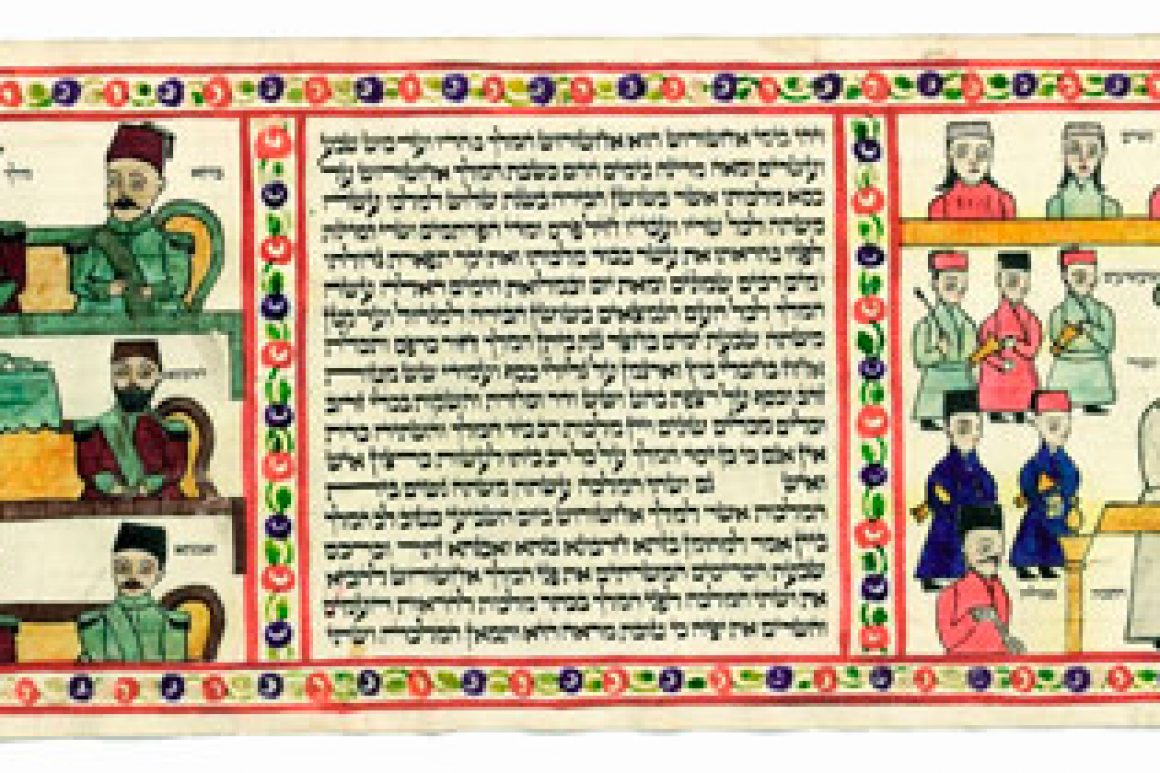 ויהי בימי אחשורוש הוא אחשורוש המלך בהדו ועד כוש שבע
ועשרים ומאה מדינה בימים ההם כשבת המלך אחשורוש על
כסא מלכותו אשר בשושן הבירה בשנת שלוש למלכו עשה
משתה לכל שריו ועבדיו חיל פרס ומדי הפרתמים ושרי המדינות
לפניו בהראתו את עשר כבוד מלכותו ואת יקר תפארת גדולתו
ימים רבים שמונים ומאת יום ובמלואת הימים האלה עשה
המלך לכל העם הנמצאים בשושן הבירה למגדול ועד קטן
משתה שבעת ימים בחצר גנת ביתן המלך חור כרפס ותכלת
אחוז בחבלי בוץ וארגמן על גלילי כסף ועמודי שש מטות
זהב וכסף על רצפת בהט ושש ודר וסחרת והשקות בכלי זהב
וכלים מכלים שונים ויין מלכות רב כיד המלך והשתיה כדת
אין אנס כי כן יסד המלך על כל רב ביתו לעשות כרצון איש
ואיש גם ושתי המלכה עשתה משתה נשים בית
המלכות אשר למלך אחשורוש ביום השביעי כטוב לב המלך
ביין אמר למהומן בזתא חרבונא בגתא ואבגתא זתר וכרכס
שבעת הסריסים המשרתים את פני המלך אחשורוש להביא
את ושתי המלכה לפני המלך בכתר מלכות להראות העמים
והשרים את יפיה כי טובת מראה היא ותמאן המלכה ושתי
נשים